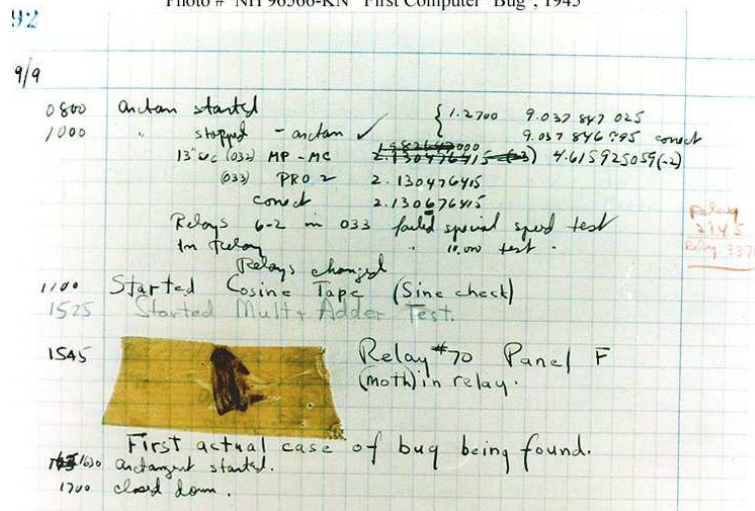 Photo # NH 96566-KN "First Computer "Bug", 1945
92
9/9
0800 arctan started
1000 " stopped - arctan ✓
{ 1.2700 9.037 847 025
9.037 846 795 correct
13"uc (032) MP - MC 2.130476415 4.615925059(-2)
(033) PRO 2 2.130476415
correct 2.130676415
Relays 6-2 in 033 failed special speed test
In Relay " 10,000 test .
Relays changed
Relay
3370
1100 Started Cosine Tape (Sine check)
1525 Started Mult + Adder Test.
1545 Relay #70 Panel F
(moth) in relay.
First actual case of bug being found.
1630 arctangent started.
1700 closed down .